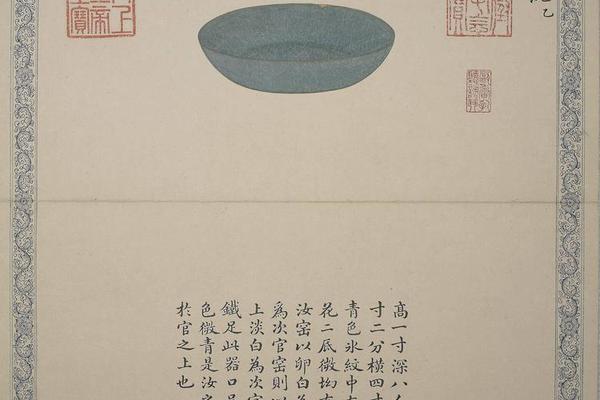 乙
高一寸深八
寸二分橫四寸
青色氷紋中有
花二底微均有
汝窑以卵白為
為次官窑則以
上淡白為次官
鐵足此器口
色微青是汝
於官之上也